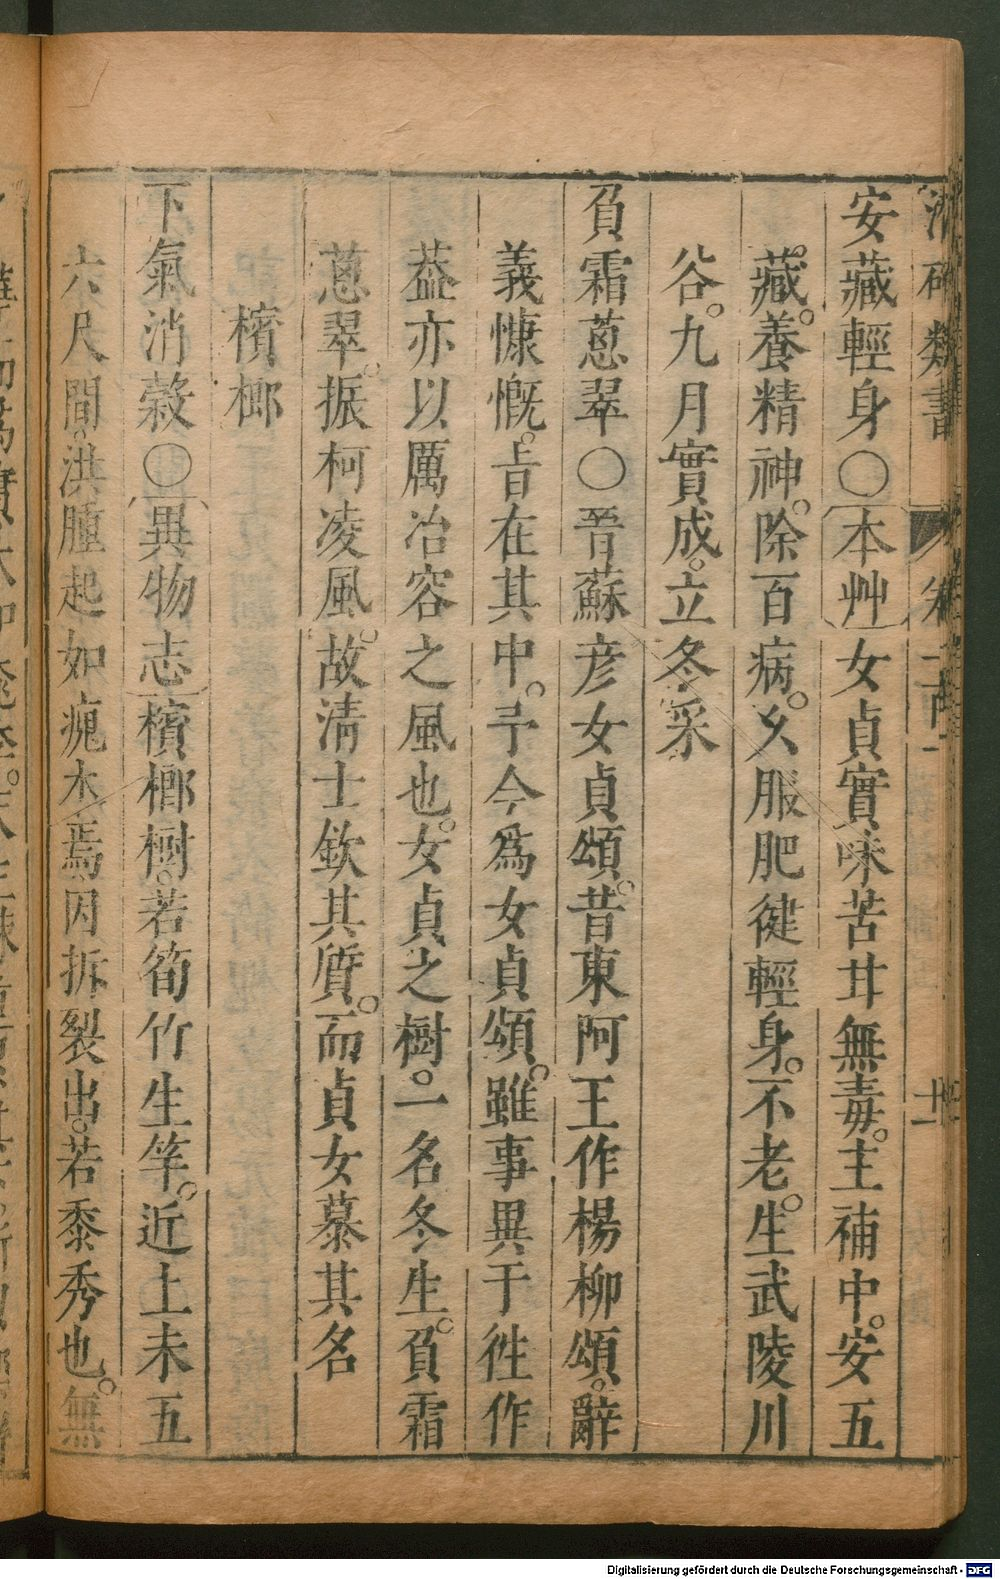 類書
安藏輕身〇本艸女貞實味苦甘無毒。主補中。安五
藏。養精神。除百病。久服肥健輕身。不老。生武陵川
谷。九月實成。立冬采
負霜蔥翠〇晉蘇彦女貞頌。昔東阿王作楊柳頌。辭
義慷慨。旨在其中。予今爲女貞頌。雖事異于徃作
葢亦以厲冶容之風也。女貞之樹。一名冬生。負霜
蔥翠。振柯凌風。故淸士欽其質。而貞女慕其名
檳榔
下氣消糓〇異物志檳榔樹。若筍竹生竿。近上未五
六尺間。洪腫起如瘣木焉。因拆裂出。若黍秀也。無
Digitalisierung gefördert durch die Deutsche Forschungsgemeinschaft - DFG